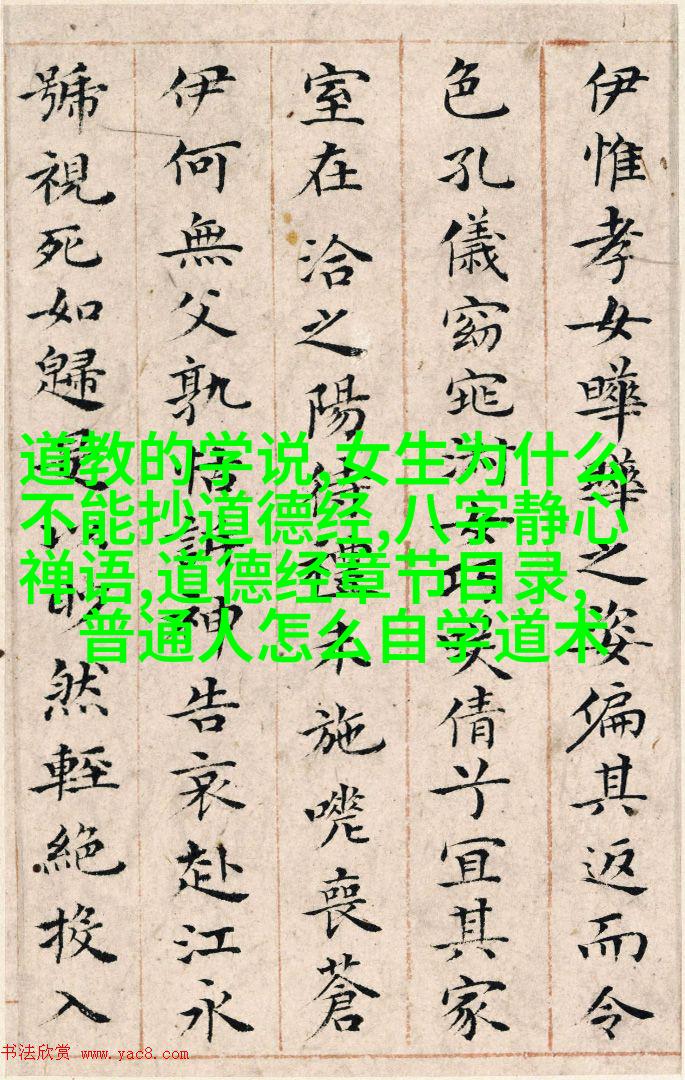 伊惟孝女曄曄之姿偏其返而令
色孔儀窈窕淑女巧笑倩兮宜其家
室在洽之陽待禮未施嗟喪蒼
伊何無父孰怙訴神告哀赴江永
號視死如歸是以眇然輕絕投入
道教的学说,女生为什么
不能抄道德经,八字静心
禅语,道德经章节目录,
普通人怎么自学道术
书法欣赏 www.yac8.com